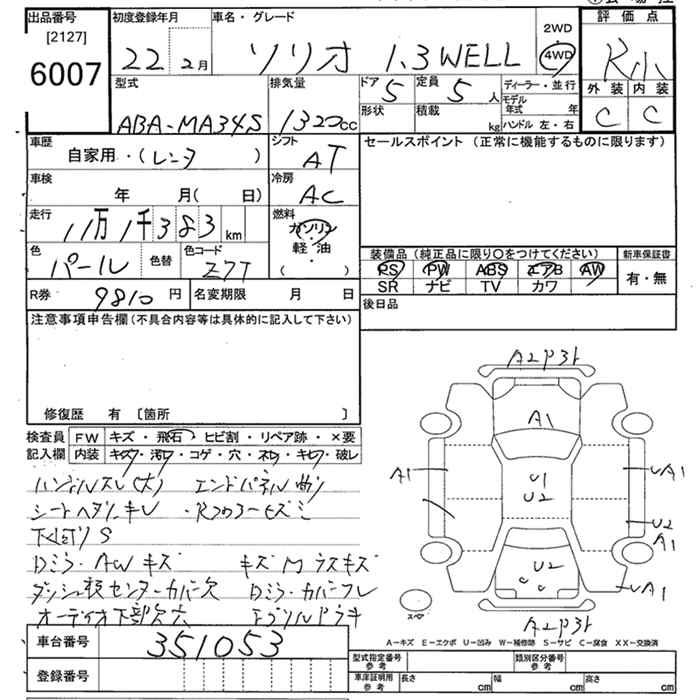 出品番号 初度登録年月 車名・グレード 2WD 評価点
[2127]
6007 22 2月 ソリオ 1.3 WELL 4WD R小
型式 排気量 ドア 5 定員 5 人 ディーラー・並行 外装 内装
ABA-MA34S 1320cc 形状 積載 kg モデル年式 年 C C
ハンドル 左・右
車歴 自家用・(レンタ ) シフト AT セールスポイント (正常に機能するものに限ります)
車検 年 月( 日) 冷房 AC
走行 11万1千383 km 燃料 ガソリン・軽油 ( )
色 パール 色替 色コード Z7T 装備品 (純正品に限り○をつけてください) 新車保証書
PS PW ABS エアB AW 有・無
SR ナビ TV カワ
R券 9810円 名変期限 月 日 後日品
注意事項申告欄(不具合内容等は具体的に記入して下さい)
修復歴 有 [箇所 ]
検査員 FW キズ・飛石・ヒビ割・リペア跡・×要
記入欄 内装 キズ・汚・コゲ・穴・ネジ・キレ・破レ
ハンドルスレ(大)
シートヘタリ.キレ
下廻りS
Dミラ・AWキズ
センターカバー欠
オーディオ下部欠
A2P3ト
A1
A1 U1 UA1
U2
U2
A1
U2
UA1
スペア
A2P3ト
A=キズ E=エクボ U=凹み W=補修跡 S=サビ C=腐食 XX=交換済
車台番号 351053
型式指定番号 参考 類別区分番号 参考
登録番号 車庫証明用 参考 長さ cm 幅 cm 高さ cm